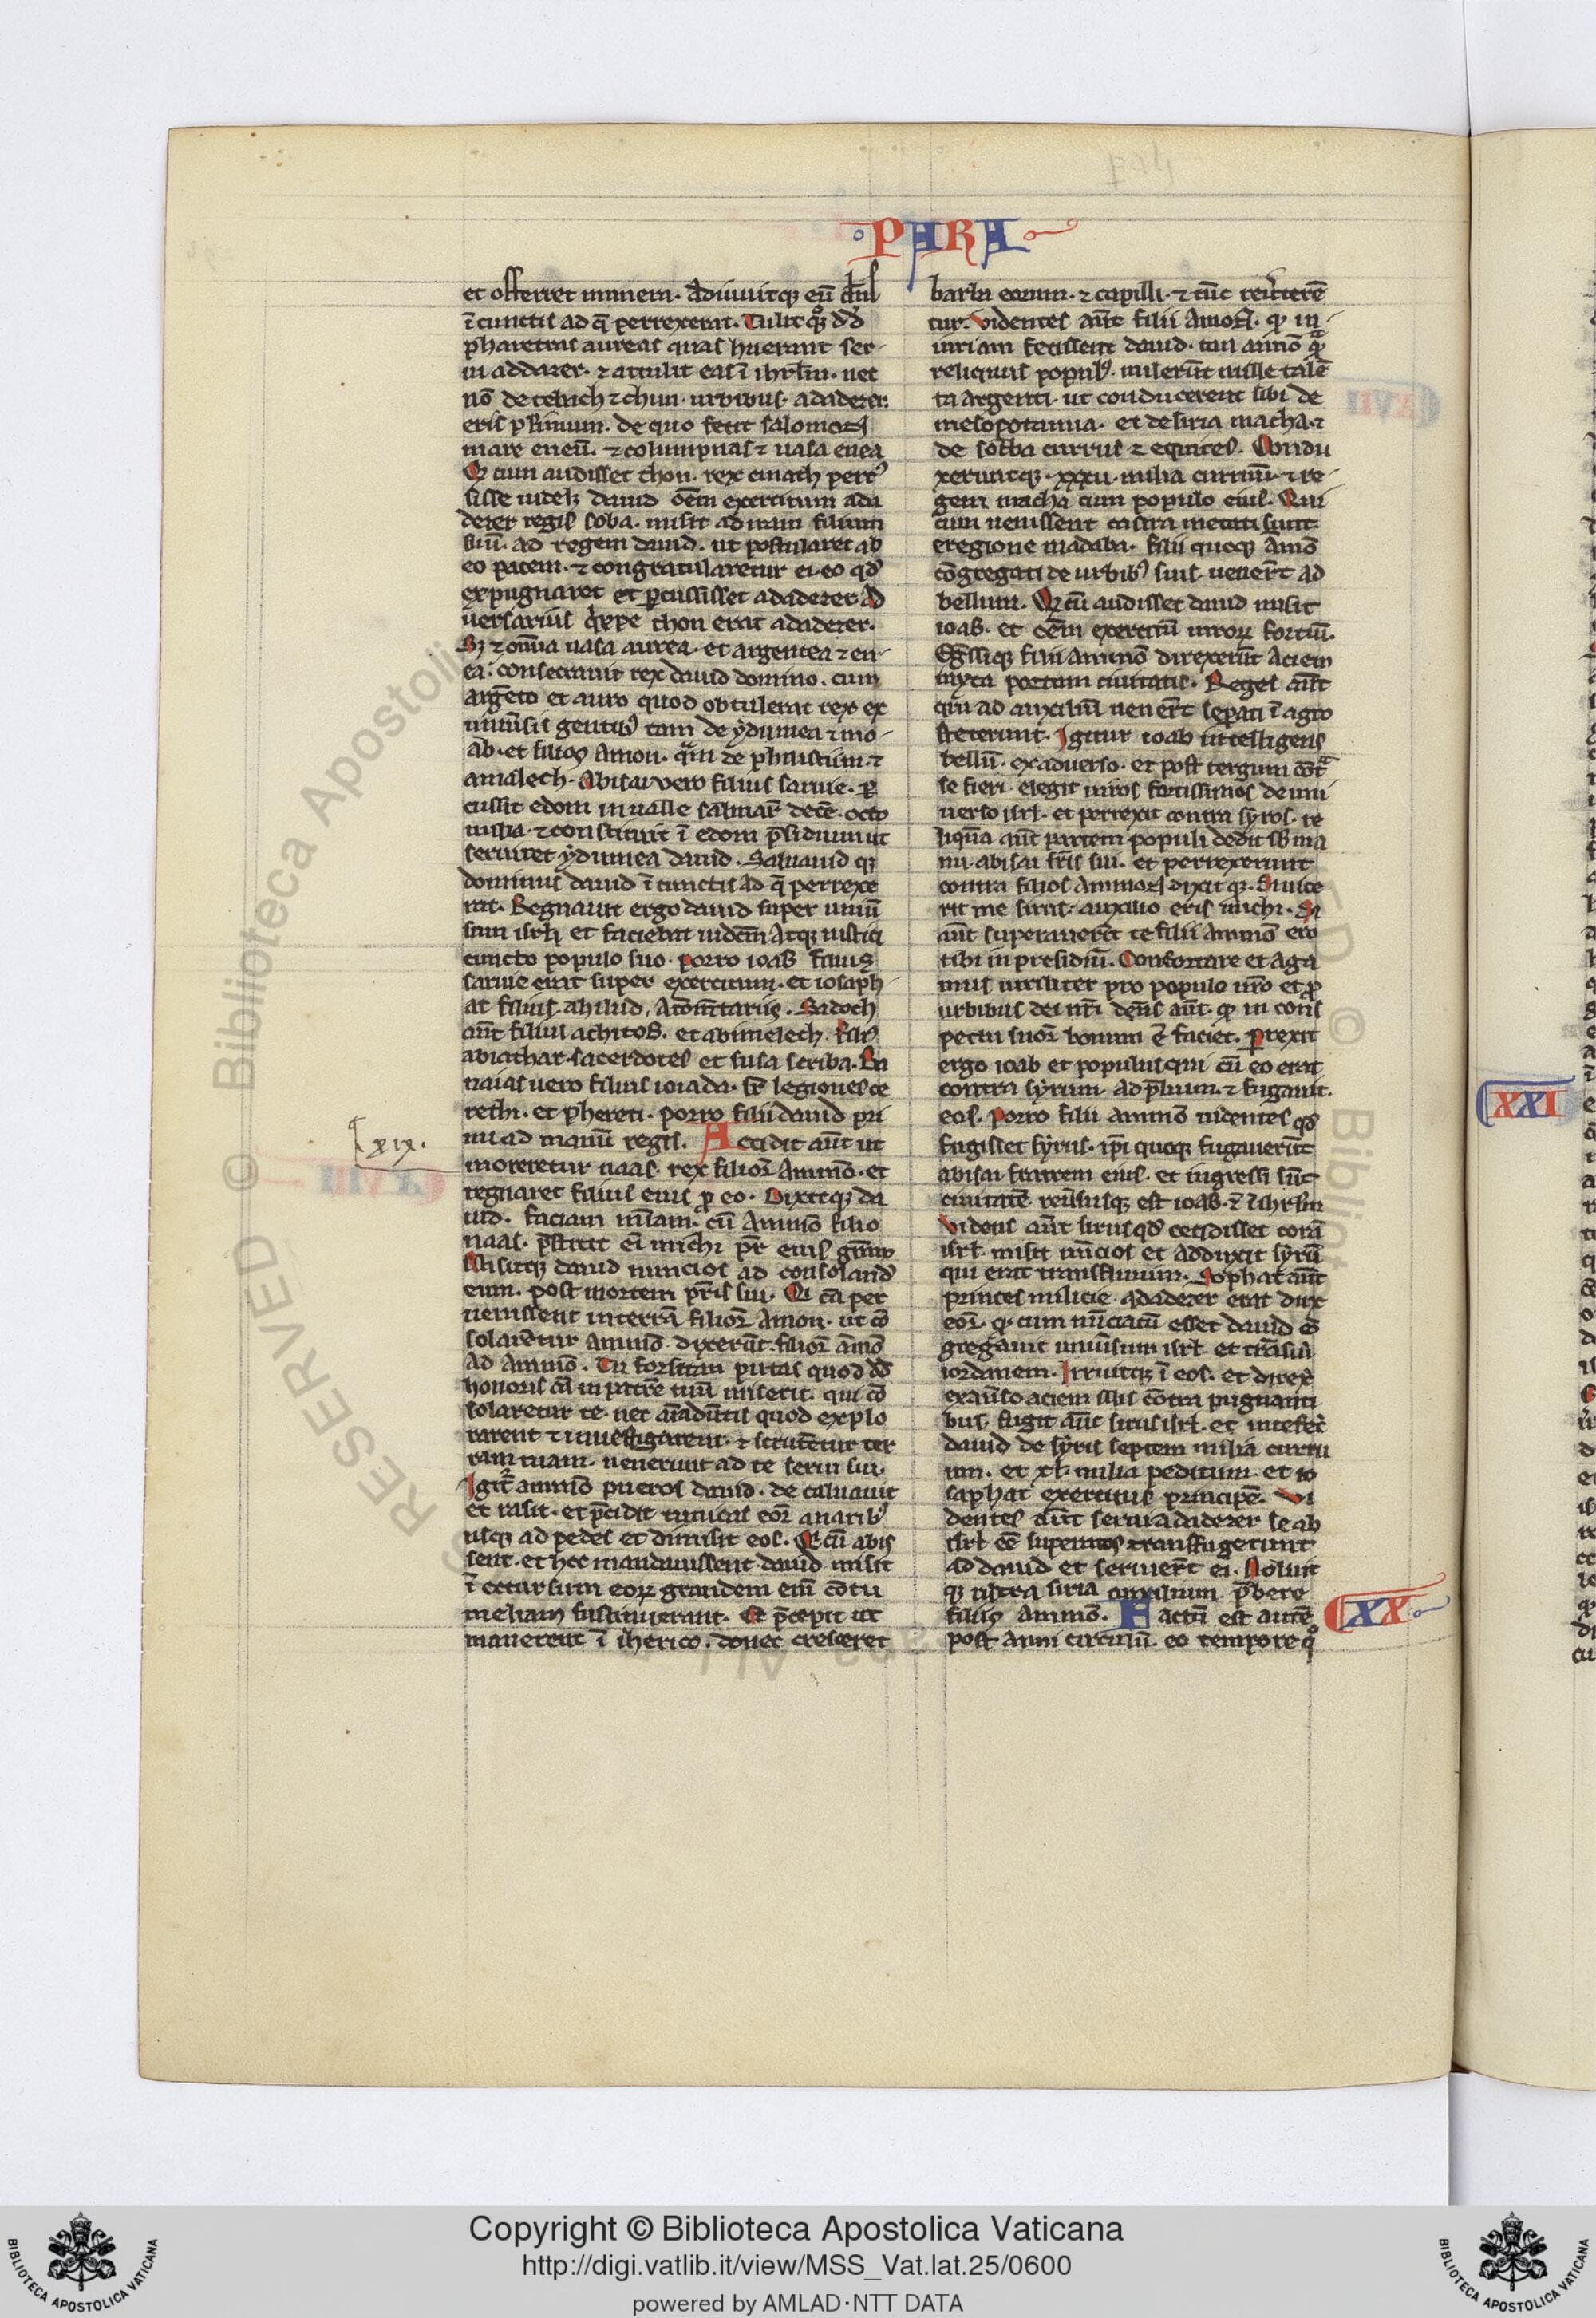 PARA
et offerret munera. Adiuuitqꝫ eū dn̄s
ī cunctis ad q̄ perrexerat. Tulit qͦꝫ dd̄
pharetras aureas quas huerant ser-
ui adadazer. ⁊ attulit eas ī ihrl̄m. nec
nō de tebach ⁊ chun. urbibus adadezer.
eris plimum. de quo fecit salomon
mare eneū. ⁊ columpnas ⁊ uasa enea
Qͩ cum audisset thou. rex emath percꝰ
sisse uidelꝫ dauid oēm exercitum ada
dezer regis soba. misit aduram filium
suū. ad regem dauid. ut postularet ab
eo pacem. ⁊ congratularetur ei. eo qd̓
expugnaret et ꝑcussisset adadezer. Ad
uersarius q̓ppe thou erat adadezer.
Sꝫ ⁊ omīa uasa aurea. et argentea ⁊ en-
ea. consecrauit rex dauid domino. cum
argēto et auro quod obtulerat rex ex
uniuīsis gentibꝰ tam de ydumea ⁊ mo-
ab. et filios amon. qᵃm de philistiim. ⁊
amalech. Abisai vero filius saruie. ꝑ
cussit edom in ualle salinaꝝ decē. octo
milia. ⁊ constituit ī edom p̄sidium ut
seruiret ydumea dauid. Saluauid qꝫ
dominus dauid ī cunctis ad q̄ perrexe
rat. Regnauit ergo dauid super uniū
sum isrl̄ et faciebat iudiciū Atqꝫ iusticiā
cuncto populo suo. porro ioab filius
saruie erat super exercitum. et iosaph-
at filius. ahilud, A com̄tariis. Sadoch
aūt filius achitob. et abimelech. filiꝰ
abiathar. sacerdotes et susa scriba. Ba
naias uero filius ioiada. sr̄ legiones ce
rethi. et phereti. porro filii dauid pri
mi ad manū regis. Accidit aūt ut
xix.
moreretur naas. rex filioꝝ Ammō. et
regnaret filius eius ꝓ eo. Dixitqꝫ da
uid. faciam m̄iam. cū Ammō filio
naas. p̄stitit eī michi pr̄ eius gr̄am
Misitqꝫ dauid nuncios ad consoland̄
eum. post mortem pr̄is sui. Qi cū per
uenissent in terrā filioꝝ Amon. ut cō
solarētur Ammō. dixerūt. filioꝝ āmō
Ad Ammō. Tu forsitan putas quod dd̄
honoris cā in patrē tuū miserit. qui cō
solaretur te. nec aīaduētis quod explo
rarent ⁊ inuestigarent. ⁊ scrutētur ter
ram tuam. uenerunt ad te serui sui.
Igit̓ ammō pueros dauid. de caluauit
et rasit. et p̄cidit tunicas eoꝝ a natibꝰ
usqꝫ ad pedes et dimisit eos. Q cū abis
sent. et hoc mandauissent dauid misit
ī occursum eoꝝ grandem em̄ cōtu
meliam sustinuerant. Et p̄cepit ut
manerent ī iherico. donec cresceret
barba eorum. ⁊ capilli. ⁊ tūc reuīterē
tur. Videntes aūt filii Amon. qͩ in-
iuriam fecissent dauid. tam ammō qᵃ
reliquus populꝰ. miserūt mille talē
ta argenti. ut conducerent sibi de
mesopotamia. et de siria macha. ⁊
de sobba currus ⁊ equites. Condu
xeruntqꝫ. xxxii. milia curruū. ⁊ re-
gem macha cum populo eius. Qui
cum uenissent castra metati sunt
eregione madaba. filii quoqꝫ Amō
cōgregati de urbibꝰ suis. uener̄t ad
bellum. Qͩ cū audisset dauid misit
ioab. et oēm exercitū uiroꝝ fortiū.
Egressiqꝫ filii Ammō direxerūt Aciem
iuxta portam ciuitatis. Reges aūt
qui ad auxiliū uener̄t sepati ī agro
steterunt. Igitur ioab intelligens
bellū. exaduerso. et post tergum cōtᵃ
se fieri. elegit uiros fortissimos de uni
uerso isrl̄. et perrexit contra syros. re
liquā aūt partem populi dedit sb̄ ma
nu. abisai fr̄is sui. et perrexerunt
contra filios Ammon dixitqꝫ. Si uice
rit me sirus. auxilio eris michi. Si
aūt superauerīt te filii Ammō ero
tibi in presidiū. Confortare et aga
mus uiriliter pro populo nr̄o et ꝓ
urbibus dei nr̄i dn̄s aūt. qͩ in cons
pectu suoꝝ bonum ē faciet. Prexit
ergo ioab et populus qui cū eo erat
contra syrum. ad p̄lium. ⁊ fugauit.
eos. Porro filii ammō uidentes qd̓
fugisset syrus. ip̄i quoqꝫ fugauerūt
abisai fratrem eius. et ingressi sūt
ciuitatē. reūsusqꝫ est ioab. ī ihrl̄m
Videns aūt sirus qd̓ cecidisset corā
isrl̄. misit nūcios et adduxit syrū
qui erat transfluuium. Sophat aūt
princes milicie. adadezer erat dux
eoꝝ. qͩ cum nūciatū esset dauid cō
gregauit uniūsum isrl̄. et trāsiit
iordanem. Irruitqꝫ ī eos. et direx̄
exaūso aciem illis cōtra pugnanti
bus. fugit aūt sirus isrl̄. et intefec̄
dauid de syris septem milia curru
um. et xl. milia peditum. et io
saphat exercitus principē. Vi
dentes aūt serui adadezer se ab
isrl̄ eē superatos transfugerunt
ad dauid et seruier̄t ei. Noluit
qꝫ ultra siria auxilium p̄bere
filiis ammō. Factū est autē
XX
post anni circulū. eo tempore qͦ
XXI
Copyright © Biblioteca Apostolica Vaticana
http://digi.vatlib.it/view/MSS_Vat.lat.25/0600
powered by AMLAD·NTT DATA
BIBLIOTECA APOSTOLICA VATICANA
BIBLIOTECA APOSTOLICA VATICANA